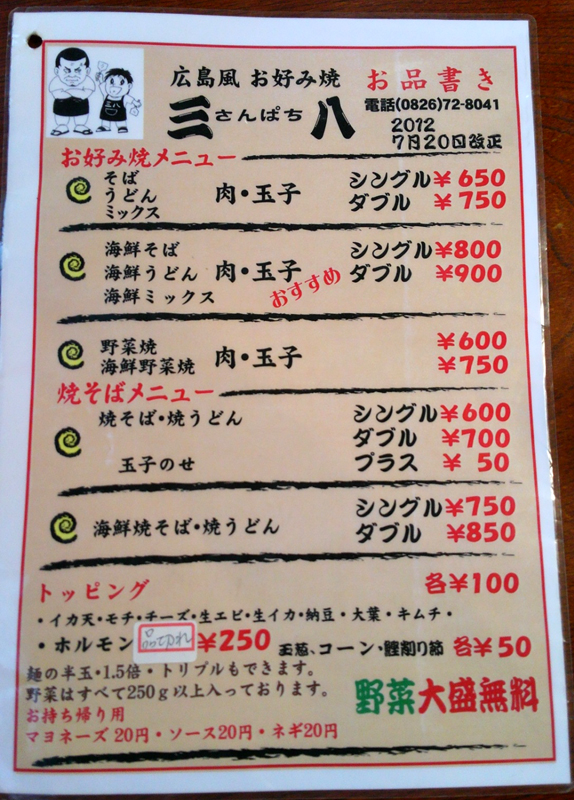 広島風 お好み焼 お品書き
三八 さんぱち
電話(0826)72-8041
2012
7月20日改正
お好み焼メニュー
そば
うどん 肉・玉子
ミックス
シングル ¥650
ダブル ¥750
海鮮そば
海鮮うどん 肉・玉子
海鮮ミックス
おすすめ
シングル ¥800
ダブル ¥900
野菜焼 ¥600
海鮮野菜焼 肉・玉子 ¥750
焼そばメニュー
焼そば・焼うどん シングル ¥600
ダブル ¥700
玉子のせ プラス ¥ 50
海鮮焼そば・焼うどん シングル ¥750
ダブル ¥850
トッピング 各¥100
・イカ天・モチ・チーズ・生エビ・生イカ・納豆・大葉・キムチ・
・ホルモン 品切れ ¥250 玉葱、コーン・鰹削り節 各¥50
麺の半玉・1.5倍・トリプルもできます。
野菜はすべて250g以上入っております。
野菜大盛無料
お持ち帰り用
マヨネーズ 20円・ソース20円・ネギ20円